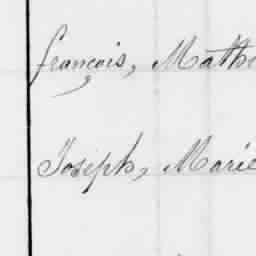 françois, Mathe
Joseph, Marie